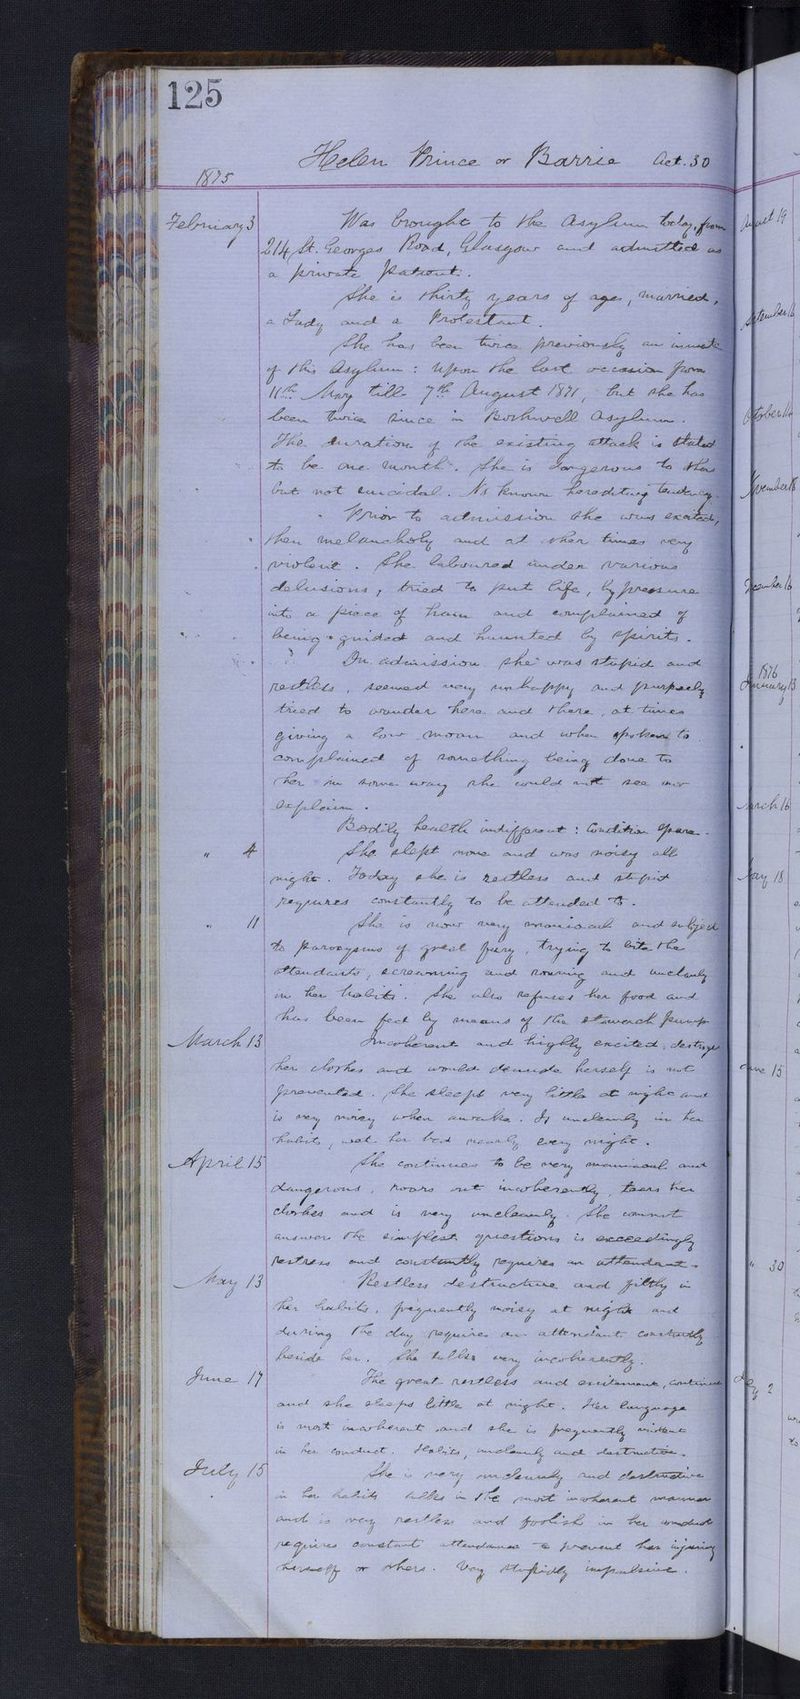 125
Helen Prince or Barrie Aet. 30
1875
February 3 Was brought to the Asylum today, from
214 St. Georges Road, Glasgow and admitted as
a private patient.
She is thirty years of age, married,
a Lady and a Protestant.
She has been twice previously an inmate
of this Asylum: upon the last occasion from
11th May till 7th August 1871, but she has
been twice since in Bothwell Asylum.
The duration of the existing attack is stated
to be one month. She is dangerous to others
but not suicidal. No known hereditary tendency.
Prior to admission she was excited,
then melancholy and at other times very
violent. She laboured under various
delusions, tried to put life, by pressure
into a piece of ham and complained of
being guided and haunted by spirits.
On admission she was stupid and
restless, seemed very unhappy and purposely
tried to wander here and there, at times
giving a low moan and when spoken to
complained of something being done to
her in some way she could not see nor
explain.
Bodily health indifferent: Condition spare.
" 4 She slept none and was noisy all
night. Today she is restless and stupid
requires constantly to be attended to.
" 11 She is now very maniacal and subject
to paroxysms of great fury, trying to bite the
attendants, screaming and roaring and uncleanly
in her habits. She also refuses her food and
has been fed by means of the stomach pump
March 13 Incoherent and highly excited, destroys
her clothes and would denude herself is not
prevented. She sleeps very little at night and
is very noisy when awake. Is uncleanly in her
habits, wet her bed nearly every night.
April 15 She continues to be very maniacal and
dangerous, roars out incoherently, tears her
clothes and is very uncleanly. She cannot
answer the simplest questions is exceedingly
restless and constantly requires an attendant.
May 13 Restless destructive and filthy in
her habits, frequently noisy at night and
during the day requires an attendant constantly
beside her. She talks very incoherently.
June 17 The great restless and excitement, continues
and she sleeps little at night. Her language
is most incoherent and she is frequently violent
in her conduct. Habits, uncleanly and destructive.
July 15 She is very uncleanly and destructive
in her habits talks in the most incoherent manner
and is very restless and foolish in her conduct
requires constant attendance to prevent her injuring
herself or others. Very stupidly impulsive.
August 19
September 16
October 14
November 18
December 16
1876
January 13
March 16
May 18
June 15
" 30
July 2